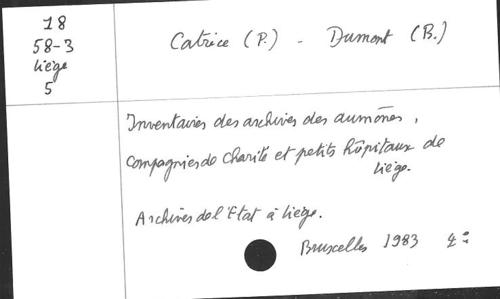 18
58-3
Liège
5
Catrice (P.) - Dumont (B.)
Inventaires des archives des aumônes,
Compagnies de Charité et petits hôpitaux de
Liège.
Archives de l'Etat à Liège.
Bruxelles 1983 4°